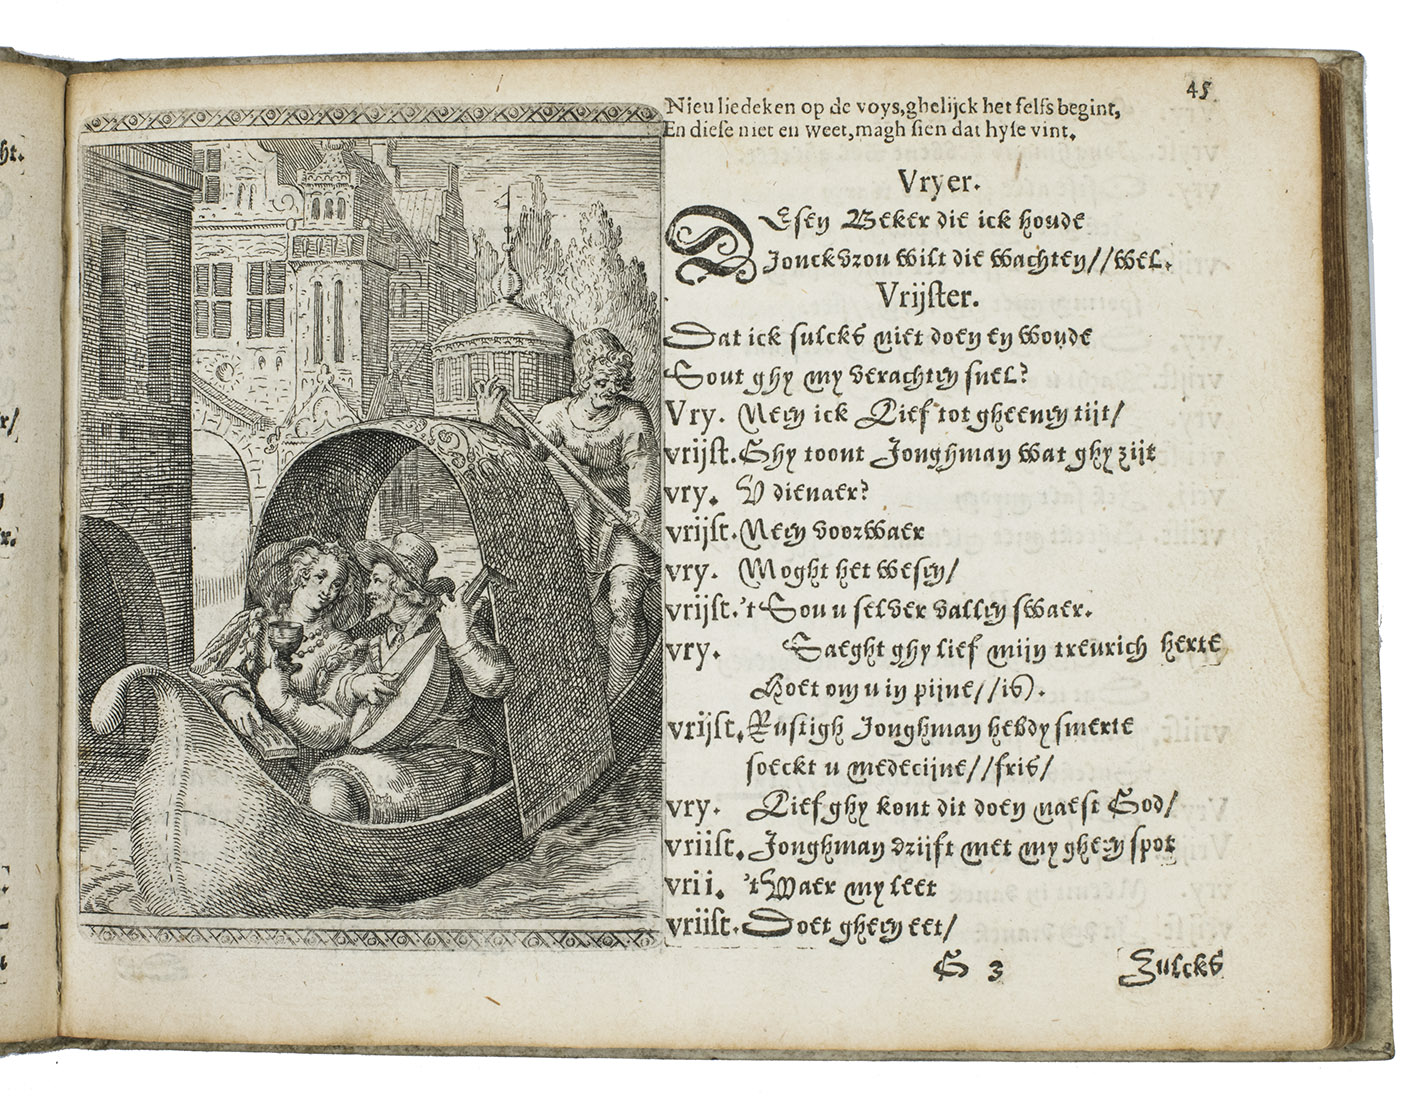 45
Nieu liedeken op de voys, ghelijck het selfs begint,
En diese niet en weet, magh sien dat hyse vint.
Vryer.
DEsen Beker die ick houde
Jonckvrou wilt die wachten//wel.
Vrijster.
Dat ick sulcks niet doen en woude
Sout ghy my verachten snel?
Vry. Neen ick Lief tot gheenen tijt/
vrijst. Ghy toont Jonghman wat ghy zijt
vry. V dienaer?
vrijst. Neen voorwaer
vry. Moght het wesen/
vrijst. 't Sou u selver vallen swaer.
vry. Saeght ghy lief mijn treurich herte
Hoet om u in pijne//is.
vrijst. Rustigh Jonghman hebdy smerte
soeckt u medecijne//fris/
vry. Lief ghy kont dit doen naest God/
vriist. Jonghman drijft met my gheen spot
vrii. 't Waer my leet
vriist. Doet gheen eet/
G 3 Zulcks
ht.
r/
r.